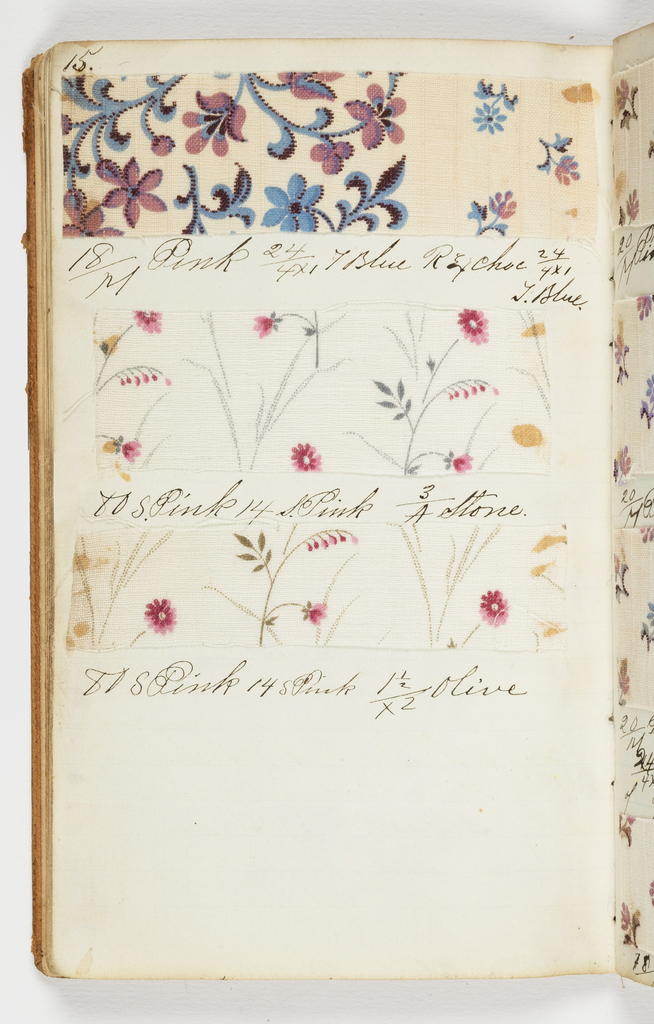 15.
18/M Pink 24/4x1 7 Blue R & choc 24/4x1
7. Blue.
80 S. Pink 14 S. Pink 3/A Stone.
80 S Pink 14 S Pink 1½/x2 Olive
20/M
20/M
20/M
24/4x
18